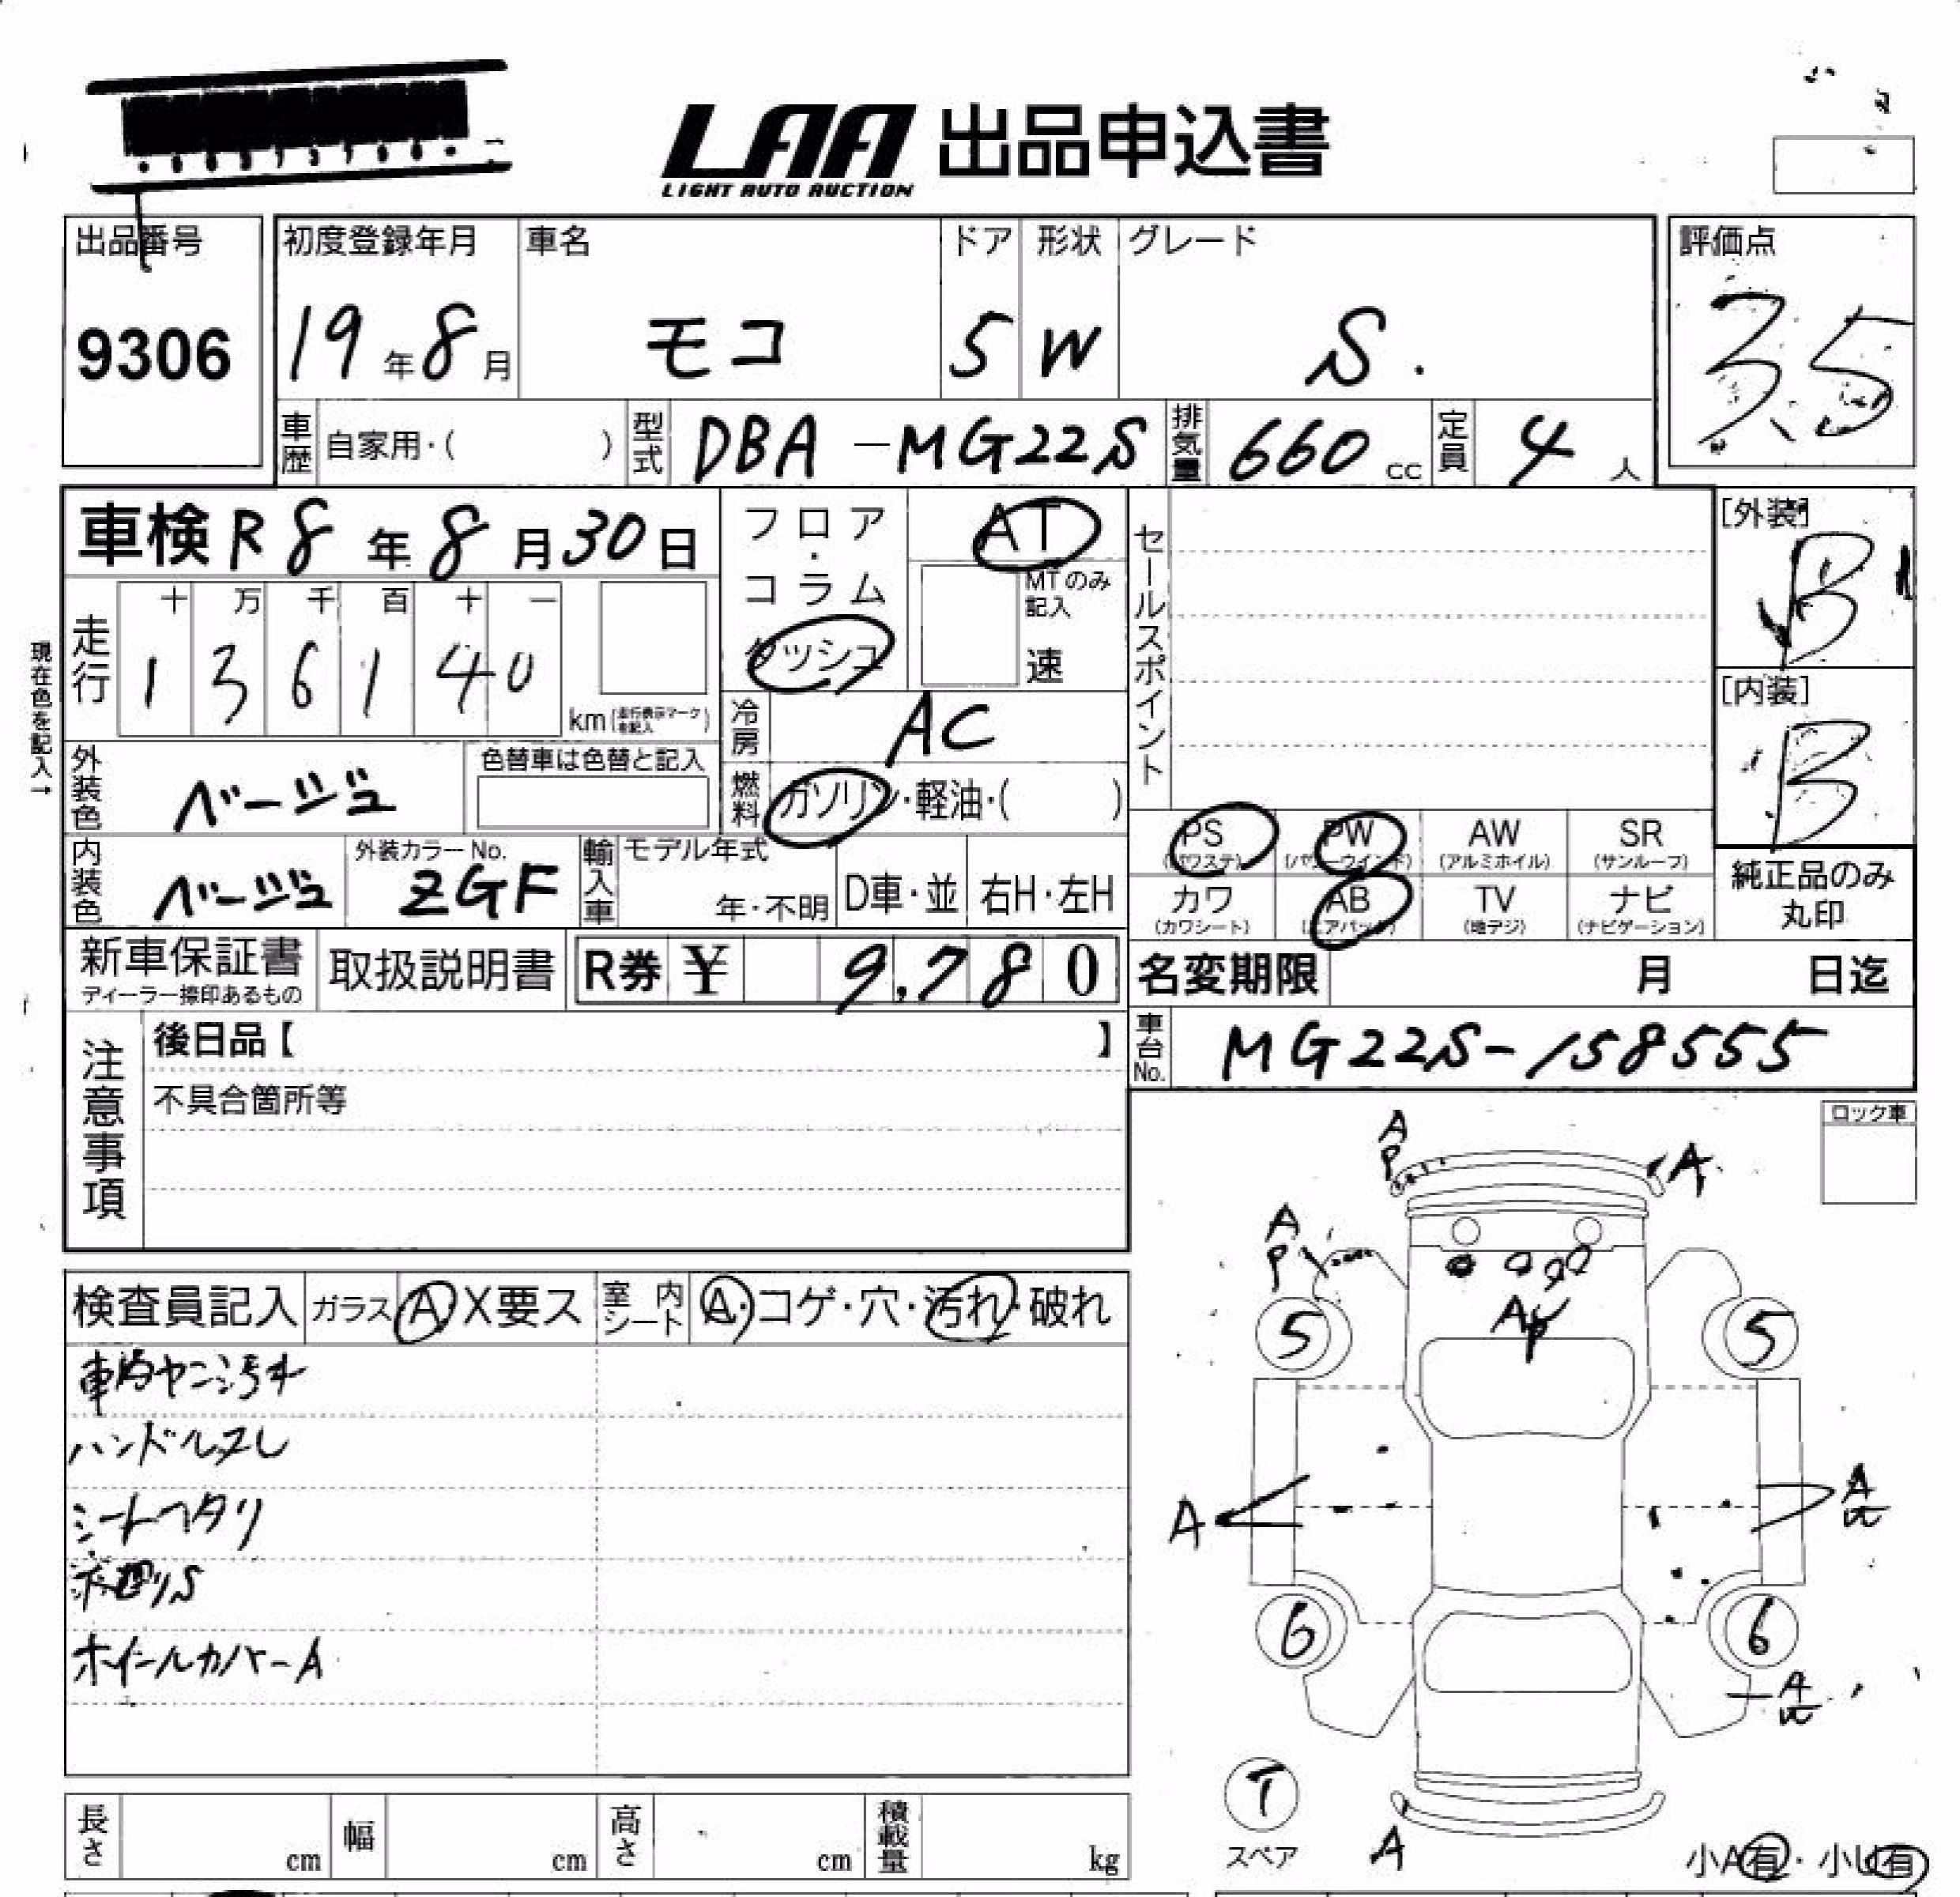 LAA 出品申込書
LIGHT AUTO AUCTION
出品番号 初度登録年月 車名 ドア 形状 グレード 評価点
9306 19年8月 モコ 5 W S. 3.5
車歴 自家用・( ) 型式 DBA-MG22S 排気量 660cc 定員 4人
車検 R8年8月30日 フロア・コラム ダッシュ AT セールスポイント [外装] B
MTのみ記入 速
現在色を記入→
走行 十 万 千 百 十 一
1 3 6 1 4 0 km (走行表示マークを記入) [内装] B
冷房 AC
外装色 ベージュ 色替車は色替と記入 燃料 ガソリン・軽油・( )
PS (パワステ) PW (パワーウインド) AW (アルミホイル) SR (サンルーフ)
内装色 ベージュ 外装カラーNo. ZGF 輸入車 モデル年式 年・不明 D車・並 右H・左H
カワ (カワシート) AB (エアバック) TV (地デジ) ナビ (ナビゲーション) 純正品のみ丸印
新車保証書 ディーラー捺印あるもの 取扱説明書 R券 ¥ 9,780 名変期限 月 日迄
注意事項 後日品【 】 車台No. MG22S-158555
不具合箇所等
ロック車
A
P A
A
P
AP
5 5
検査員記入 ガラス A X要ス 室内シート A・コゲ・穴・汚れ・破れ
車内ヤニ汚れ
ハンドルスレ
シートヘタリ
A A
下廻りS
6 6
ホイールカバーA
A
T
スペア A 小A有・小U有
長さ cm 幅 cm 高さ cm 積載量 kg